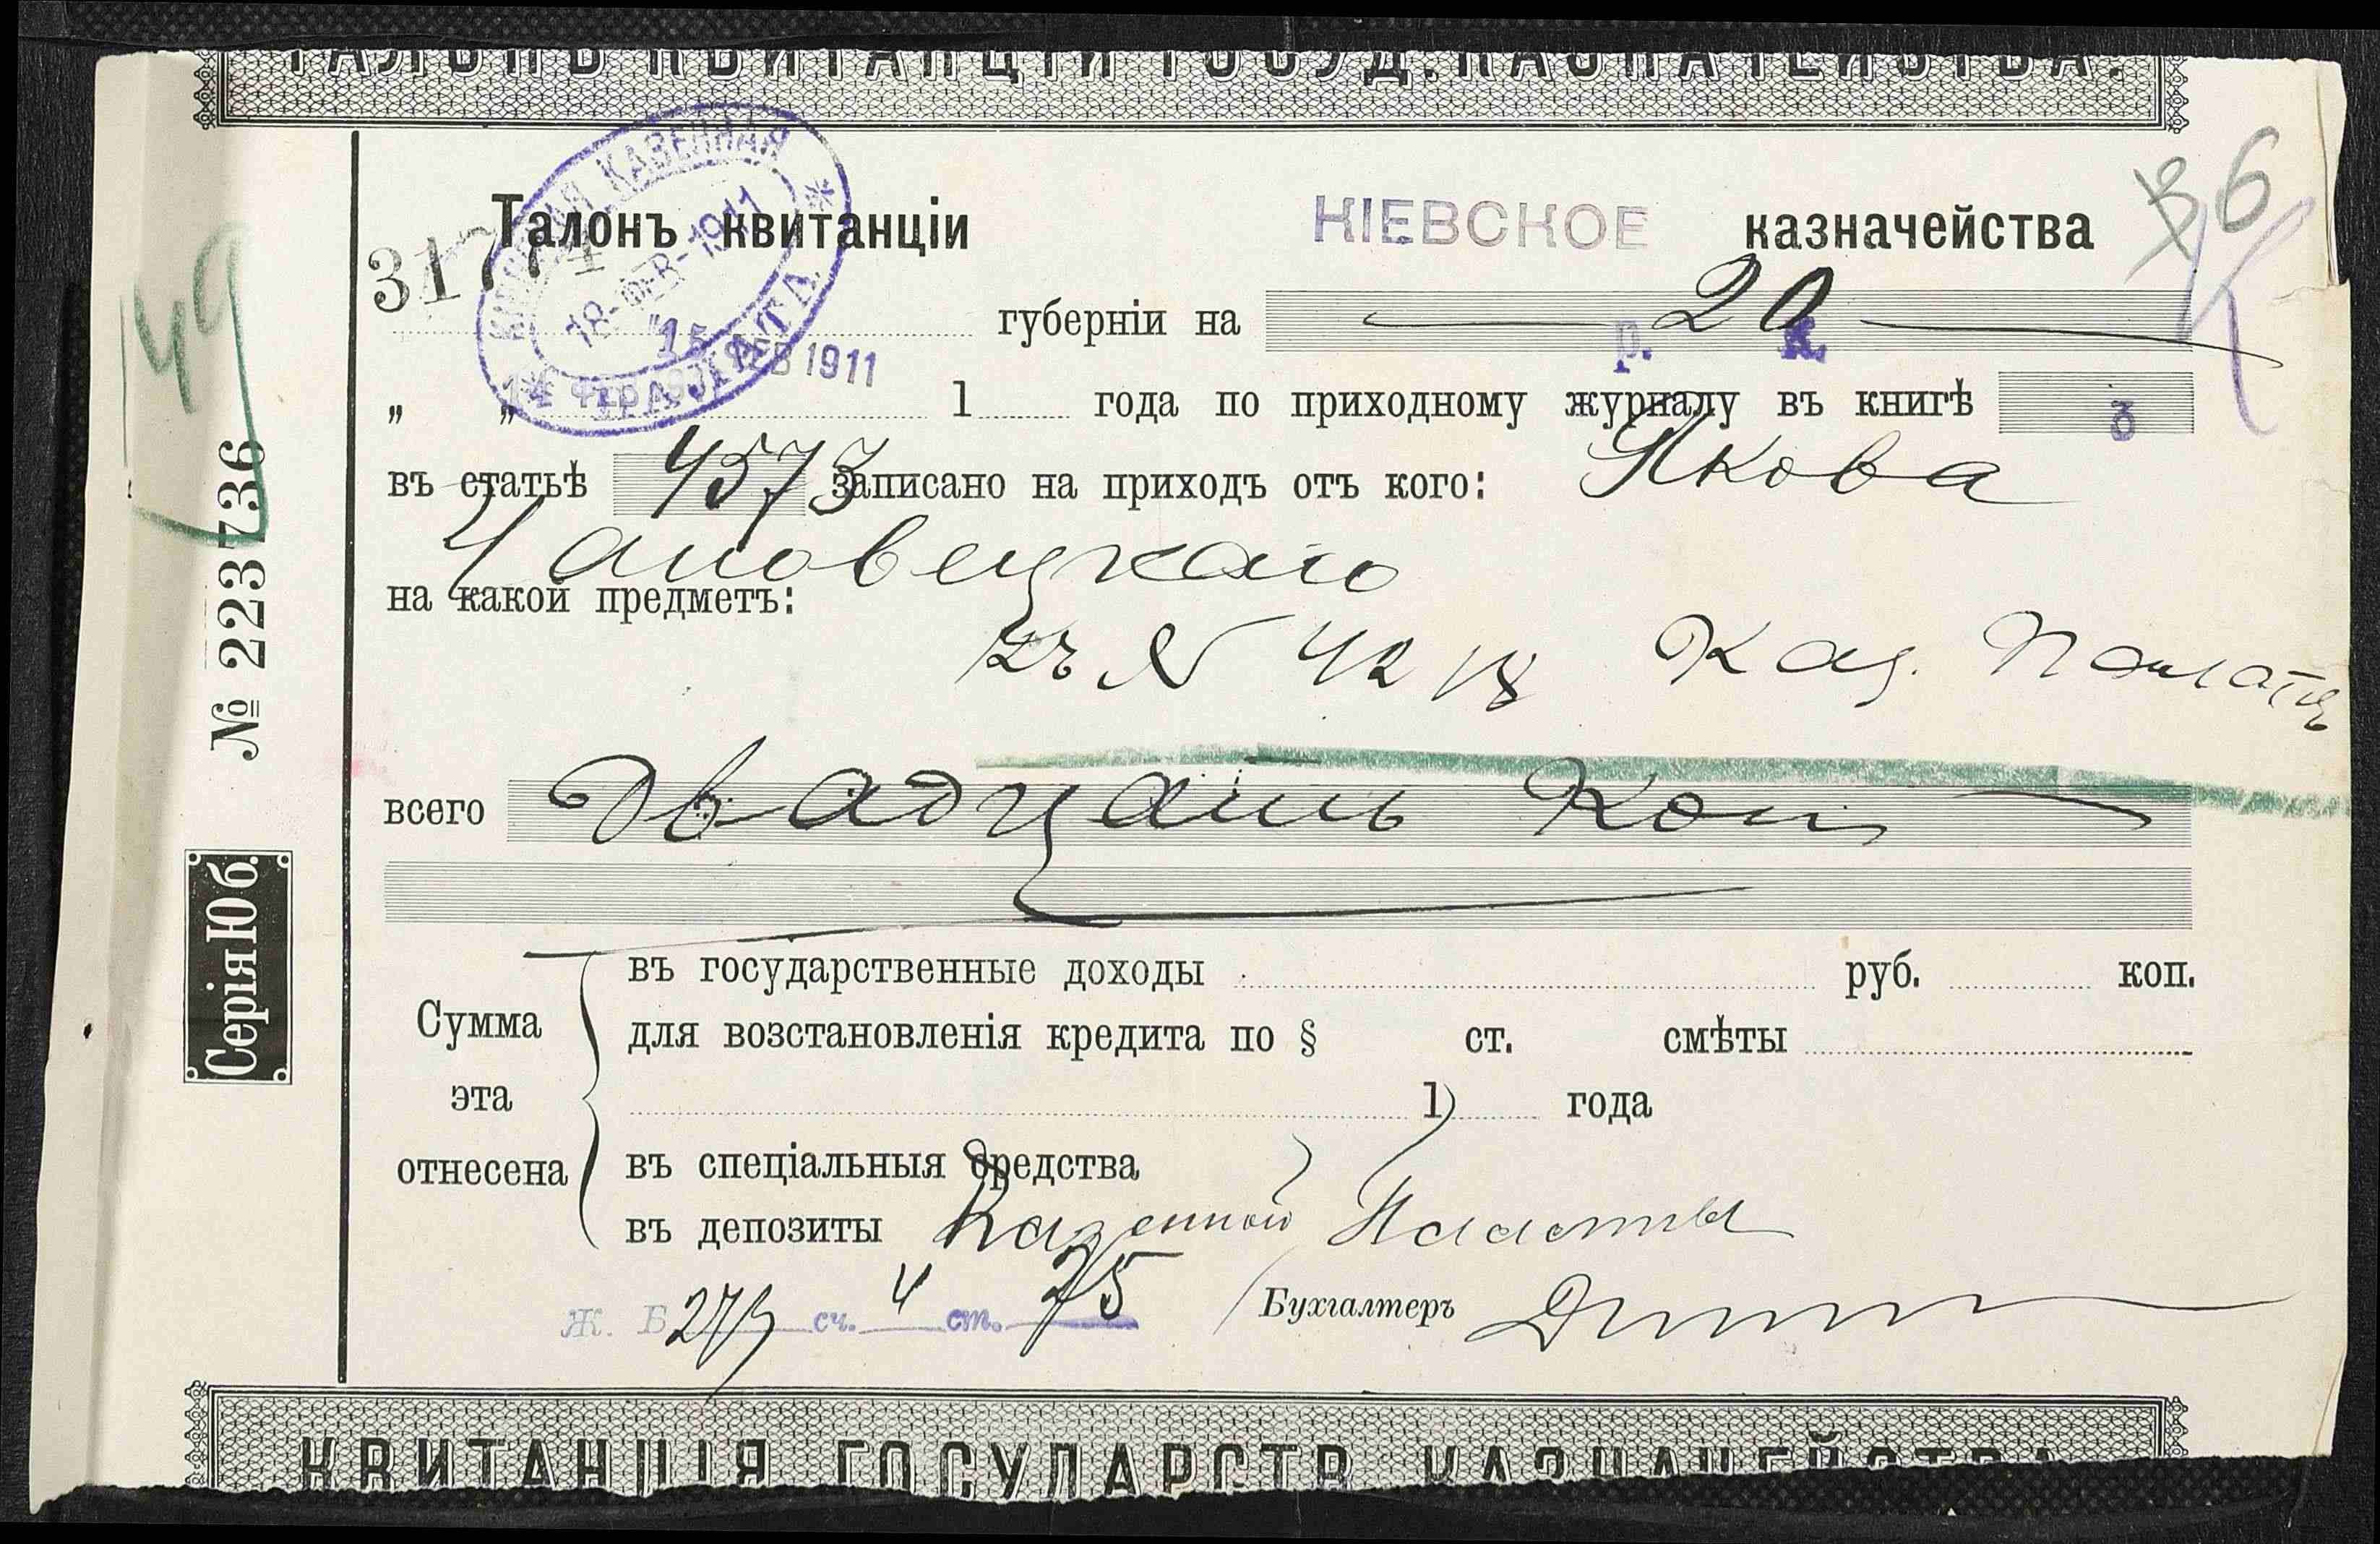 ТАЛОНЪ КВИТАНЦІИ ГОСУД. КАЗНАЧЕЙСТВА.
Талонъ квитанціи КІЕВСКОЕ казначейства
36
КІЕВСКАЯ КАЗЕННАЯ ПАЛАТА
18-ФЕВ-1911
губерніи на 20
р. к.
15 ФЕВ 1911
„ „ 1 года по приходному журналу въ книгѣ 3
въ статьѣ 4573 записано на приходъ отъ кого: Якова
Чановецкаго
на какой предметъ:
Къ № 42 Каз. Палаты
всего Двадцать Коп
въ государственные доходы руб. коп.
Сумма для возстановленія кредита по § ст. смѣты
эта 1 года
отнесена въ спеціальныя средства
въ депозиты Казенной Палаты
Ж. Б сч. 4 ст. 75 Бухгалтеръ
КВИТАНЦІЯ ГОСУДАРСТВ. КАЗНАЧЕЙСТВА
149
№ 223736
Серія Юб.